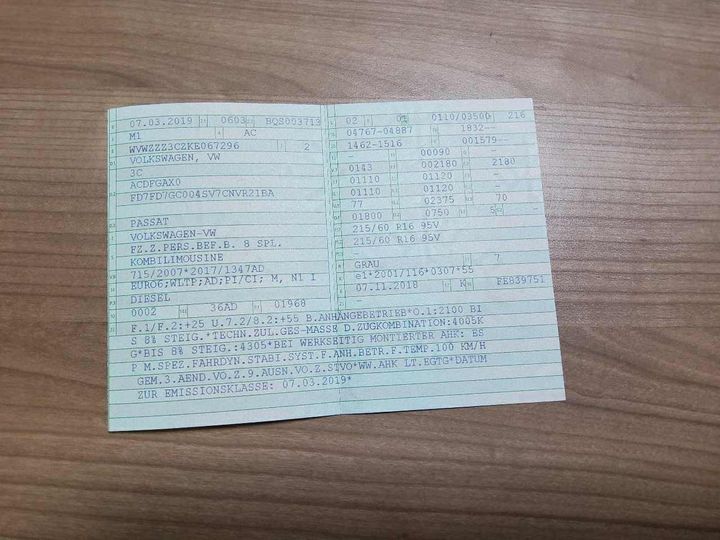 07.03.2019 0603 BQS003713
M1 AC
WVWZZZ3CZKE067296 2
VOLKSWAGEN, VW
3C
ACDFGAX0
FD7FD7GC004SV7CNVR21BA
PASSAT
VOLKSWAGEN-VW
FZ.Z.PERS.BEF.B. 8 SPL.
KOMBILIMOUSINE
715/2007*2017/1347AD
EURO6;WLTP;AD;PI/CI; M, N1 I
DIESEL
0002 36AD 01968
02 01 0110/03500 216
04767-04887 1832--
1462-1516 001579--
- 00090 -
0143 002180 2180
01110 01120 -
01110 01120 -
77 02375 70
01800 0750 5
215/60 R16 95V
215/60 R16 95V
-
GRAU 7
e1*2001/116*0307*55
07.11.2018 K FE839751
F.1/F.2:+25 U.7.2/8.2:+55 B.ANHÄNGEBETRIEB*O.1:2100 BI
S 8% STEIG.*TECHN.ZUL.GES-MASSE D.ZUGKOMBINATION:4005K
G*BIS 8% STEIG.:4305*BEI WERKSEITIG MONTIERTER AHK: ES
P M.SPEZ.FAHRDYN.STABI.SYST.F.ANH.BETR.F.TEMP.100 KM/H
GEM.3.AEND.VO.Z.9.AUSN.VO.Z.STVO*WW.AHK LT.EGTG*DATUM
ZUR EMISSIONSKLASSE: 07.03.2019*